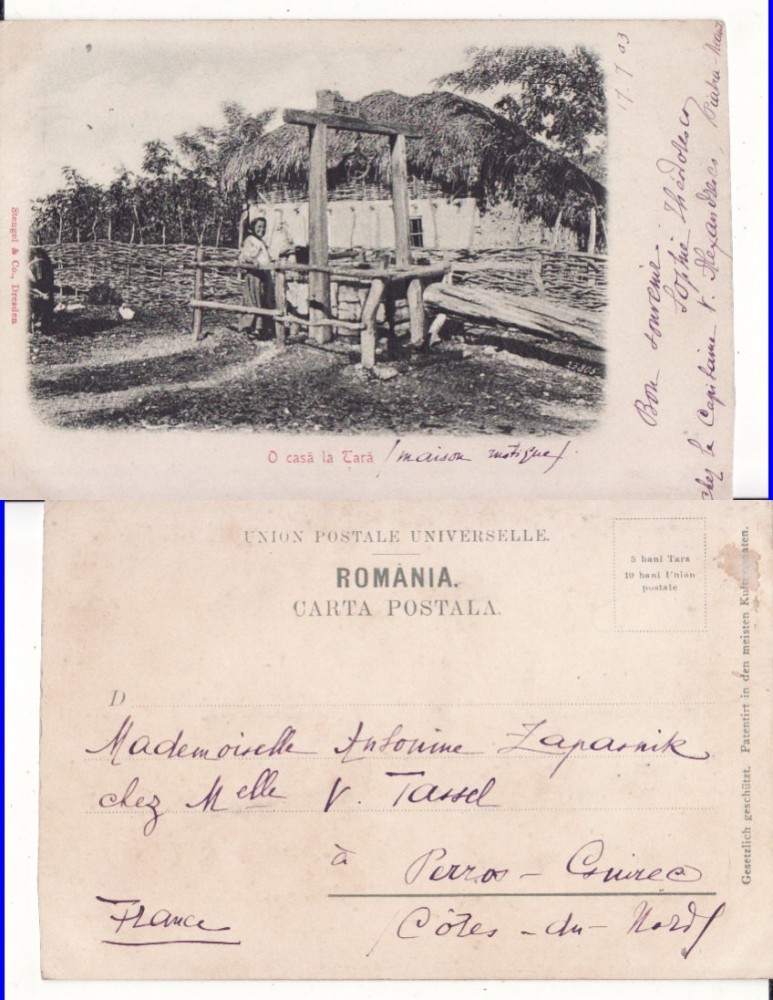 Stengel & Co., Dresden
17.7.03
Bon souvenir
Sophie Théodoresco
chez le Capitaine V. Alexandresco, Piatra-Neamț
22805
O casă la Țară (maison rustique).
UNION POSTALE UNIVERSELLE.
ROMÂNIA.
CARTA POSTALA.
5 bani Tara
10 bani Union
postale
D
Mademoiselle Antonine Zapasnik
chez Melle V. Tassel
à Perros-Guirec
France (Côtes-du-Nord)
Gesetzlich geschützt. Patentirt in den meisten